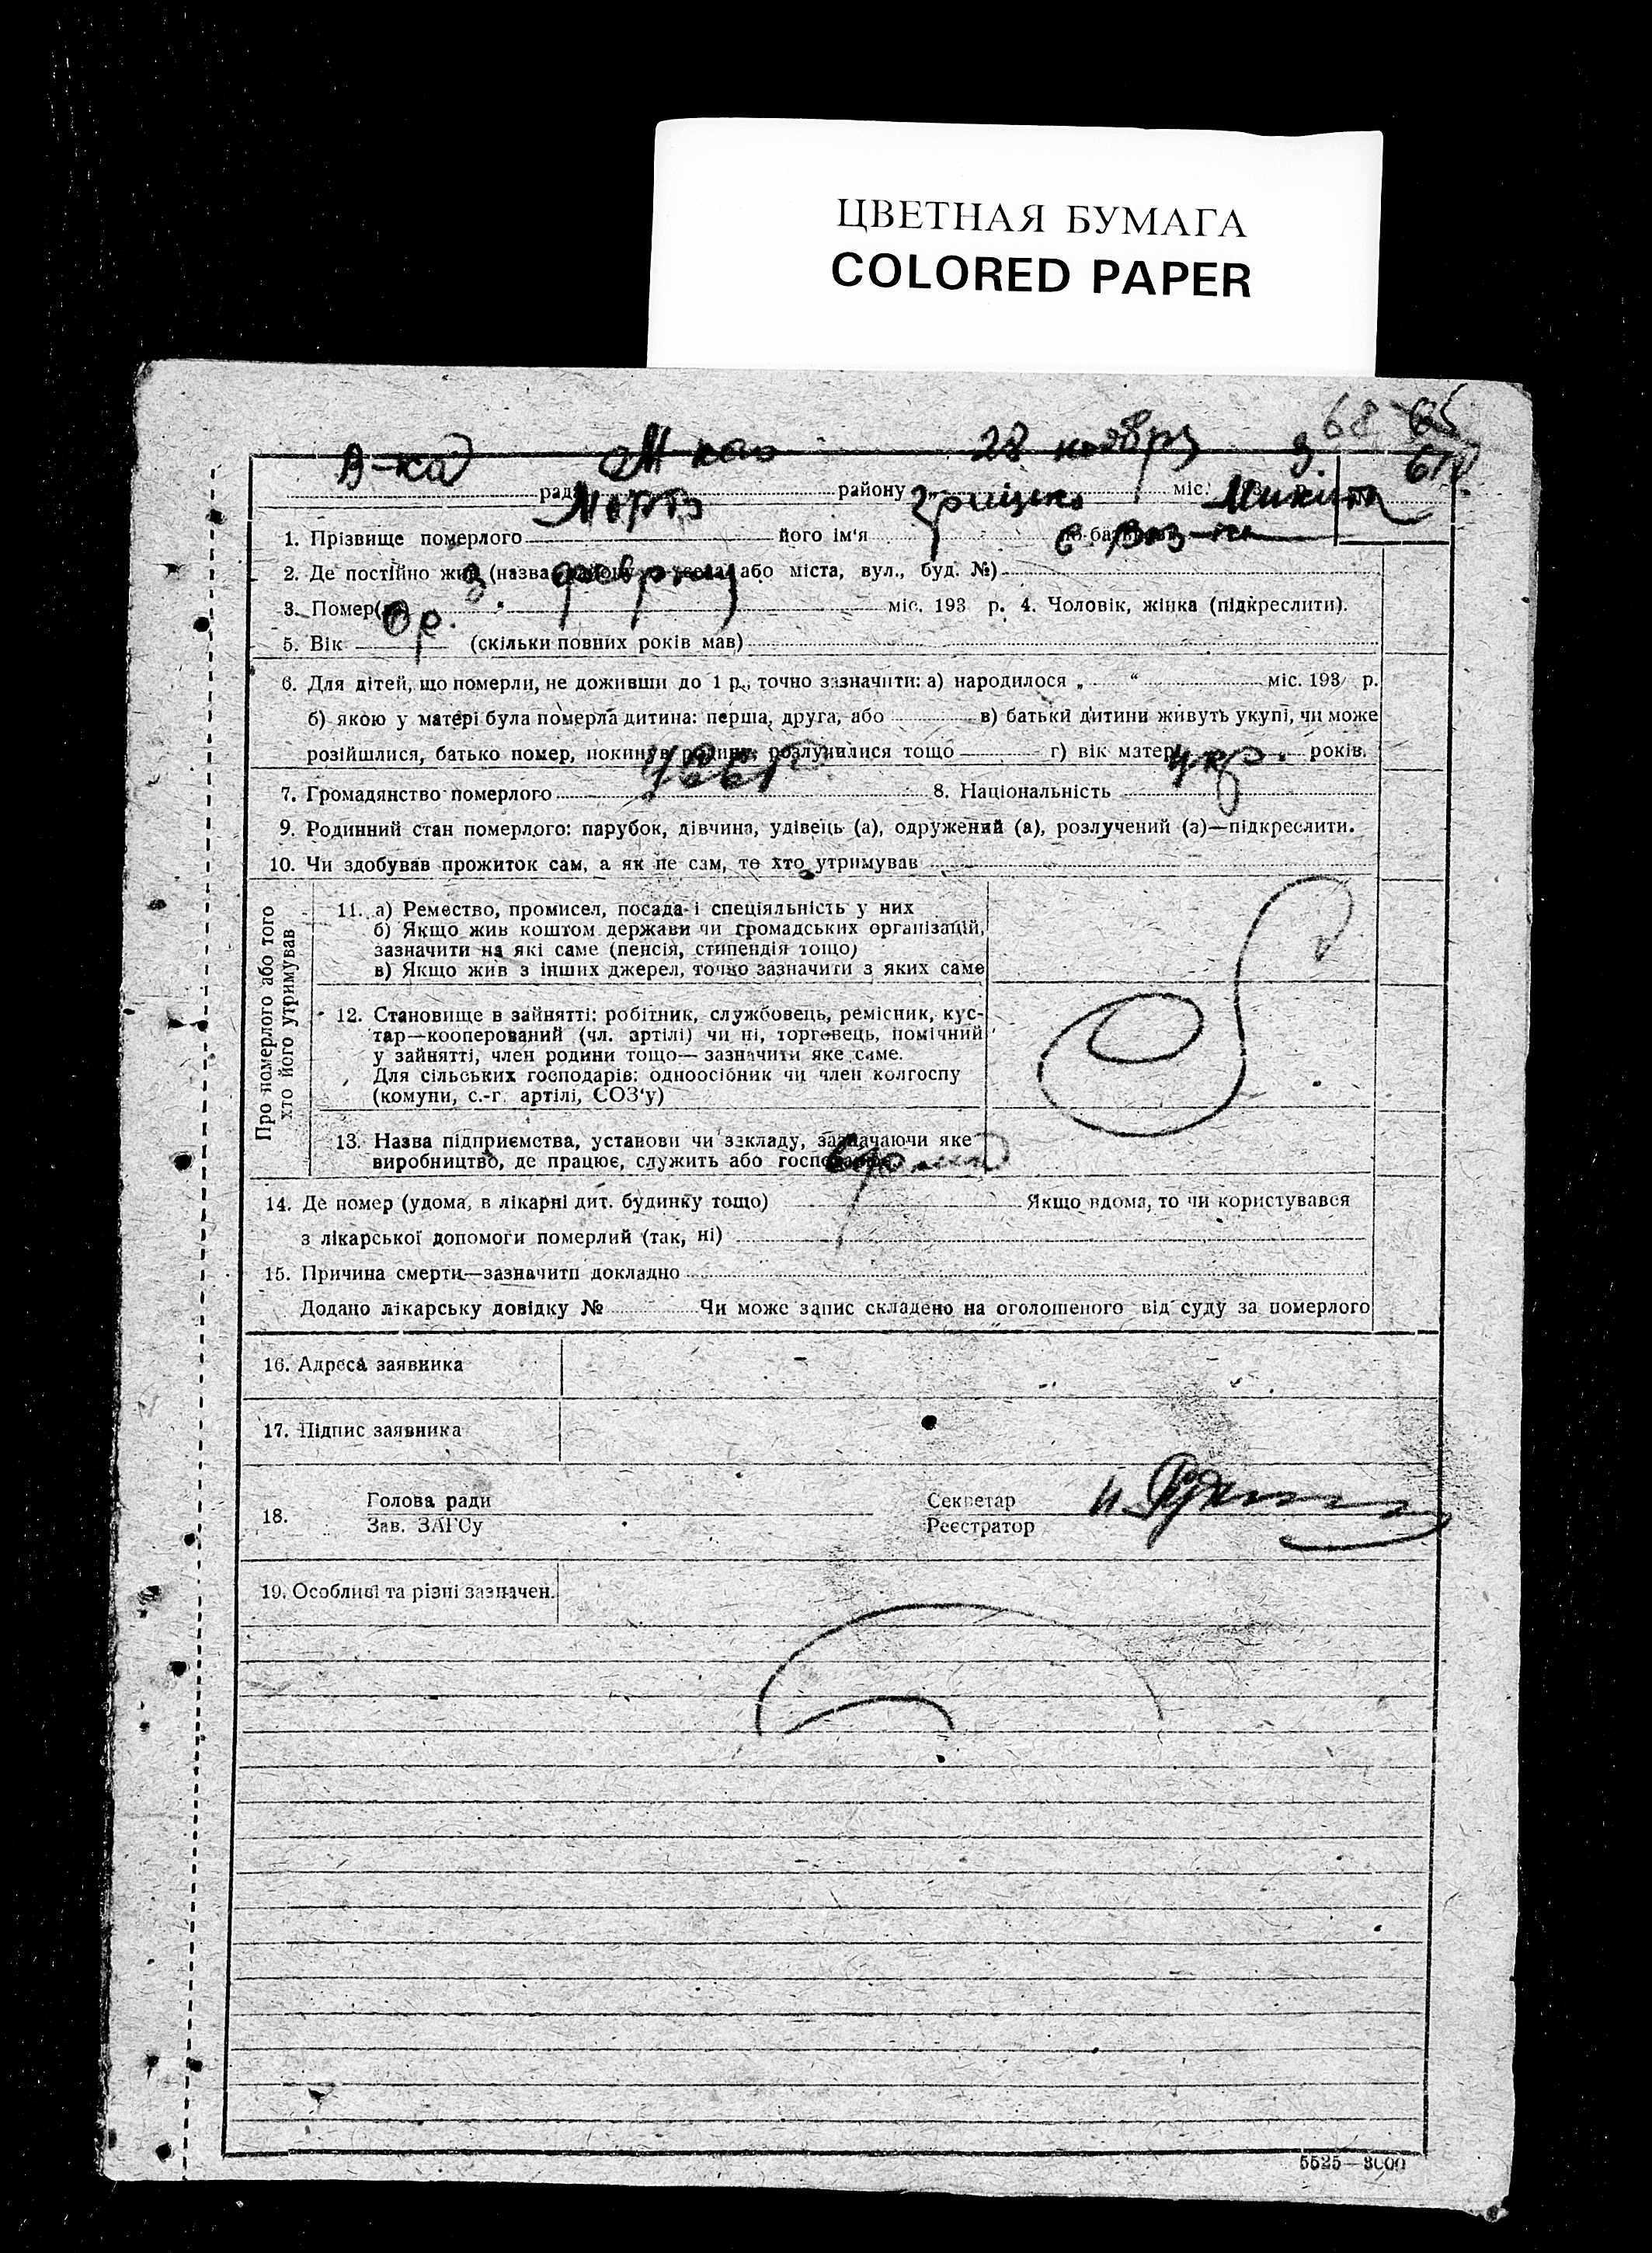 ЦВЕТНАЯ БУМАГА
COLORED PAPER
68 65
В-ка М 28 ноября 3.
рад району міс.
1. Прізвище померлого його ім'я Грицько Микита
2. Де постійно жив (назва або міста, вул., буд. №)
3. Помер(ла) 3 февраля міс. 193 р. 4. Чоловік, жінка (підкреслити).
5. Вік 6 р. (скільки повних років мав)
6. Для дітей, що померли, не доживши до 1 р., точно зазначити: а) народилося „ “ міс. 193 р.
б) якою у матері була померла дитина: перша, друга, або в) батьки дитини живуть укупі, чи може
розійшлися, батько помер, покинув родину, розлучилися тощо г) вік матері років.
7. Громадянство померлого 8. Національність укр.
9. Родинний стан померлого: парубок, дівчина, удівець (а), одружений (а), розлучений (а)—підкреслити.
10. Чи здобував прожиток сам, а як не сам, то хто утримував
Про померлого або того
хто його утримував
11. а) Ремество, промисел, посада і спеціяльність у них
б) Якщо жив коштом держави чи громадських організацій,
зазначити на які саме (пенсія, стипендія тощо)
в) Якщо жив з інших джерел, точно зазначити з яких саме
12. Становище в зайнятті: робітник, службовець, ремісник, кус-
тар—кооперований (чл. артілі) чи ні, торговець, помічний
у зайнятті, член родини тощо— зазначити яке саме.
Для сільських господарів: одноосібник чи член колгоспу
(комуни, с.-г. артілі, СОЗ'у)
13. Назва підприємства, установи чи закладу, зазначаючи яке
виробництво, де працює, служить або
14. Де помер (удома, в лікарні дит. будинку тощо) Якщо вдома, то чи користувався
з лікарської допомоги померлий (так, ні)
15. Причина смерти—зазначити докладно
Додано лікарську довідку № Чи може запис складено на оголошеного від суду за померлого
16. Адреса заявника
17. Підпис заявника
18. Голова ради Секретар
Зав. ЗАГСу Реєстратор
19. Особливі та різні зазначен.
5525—3000